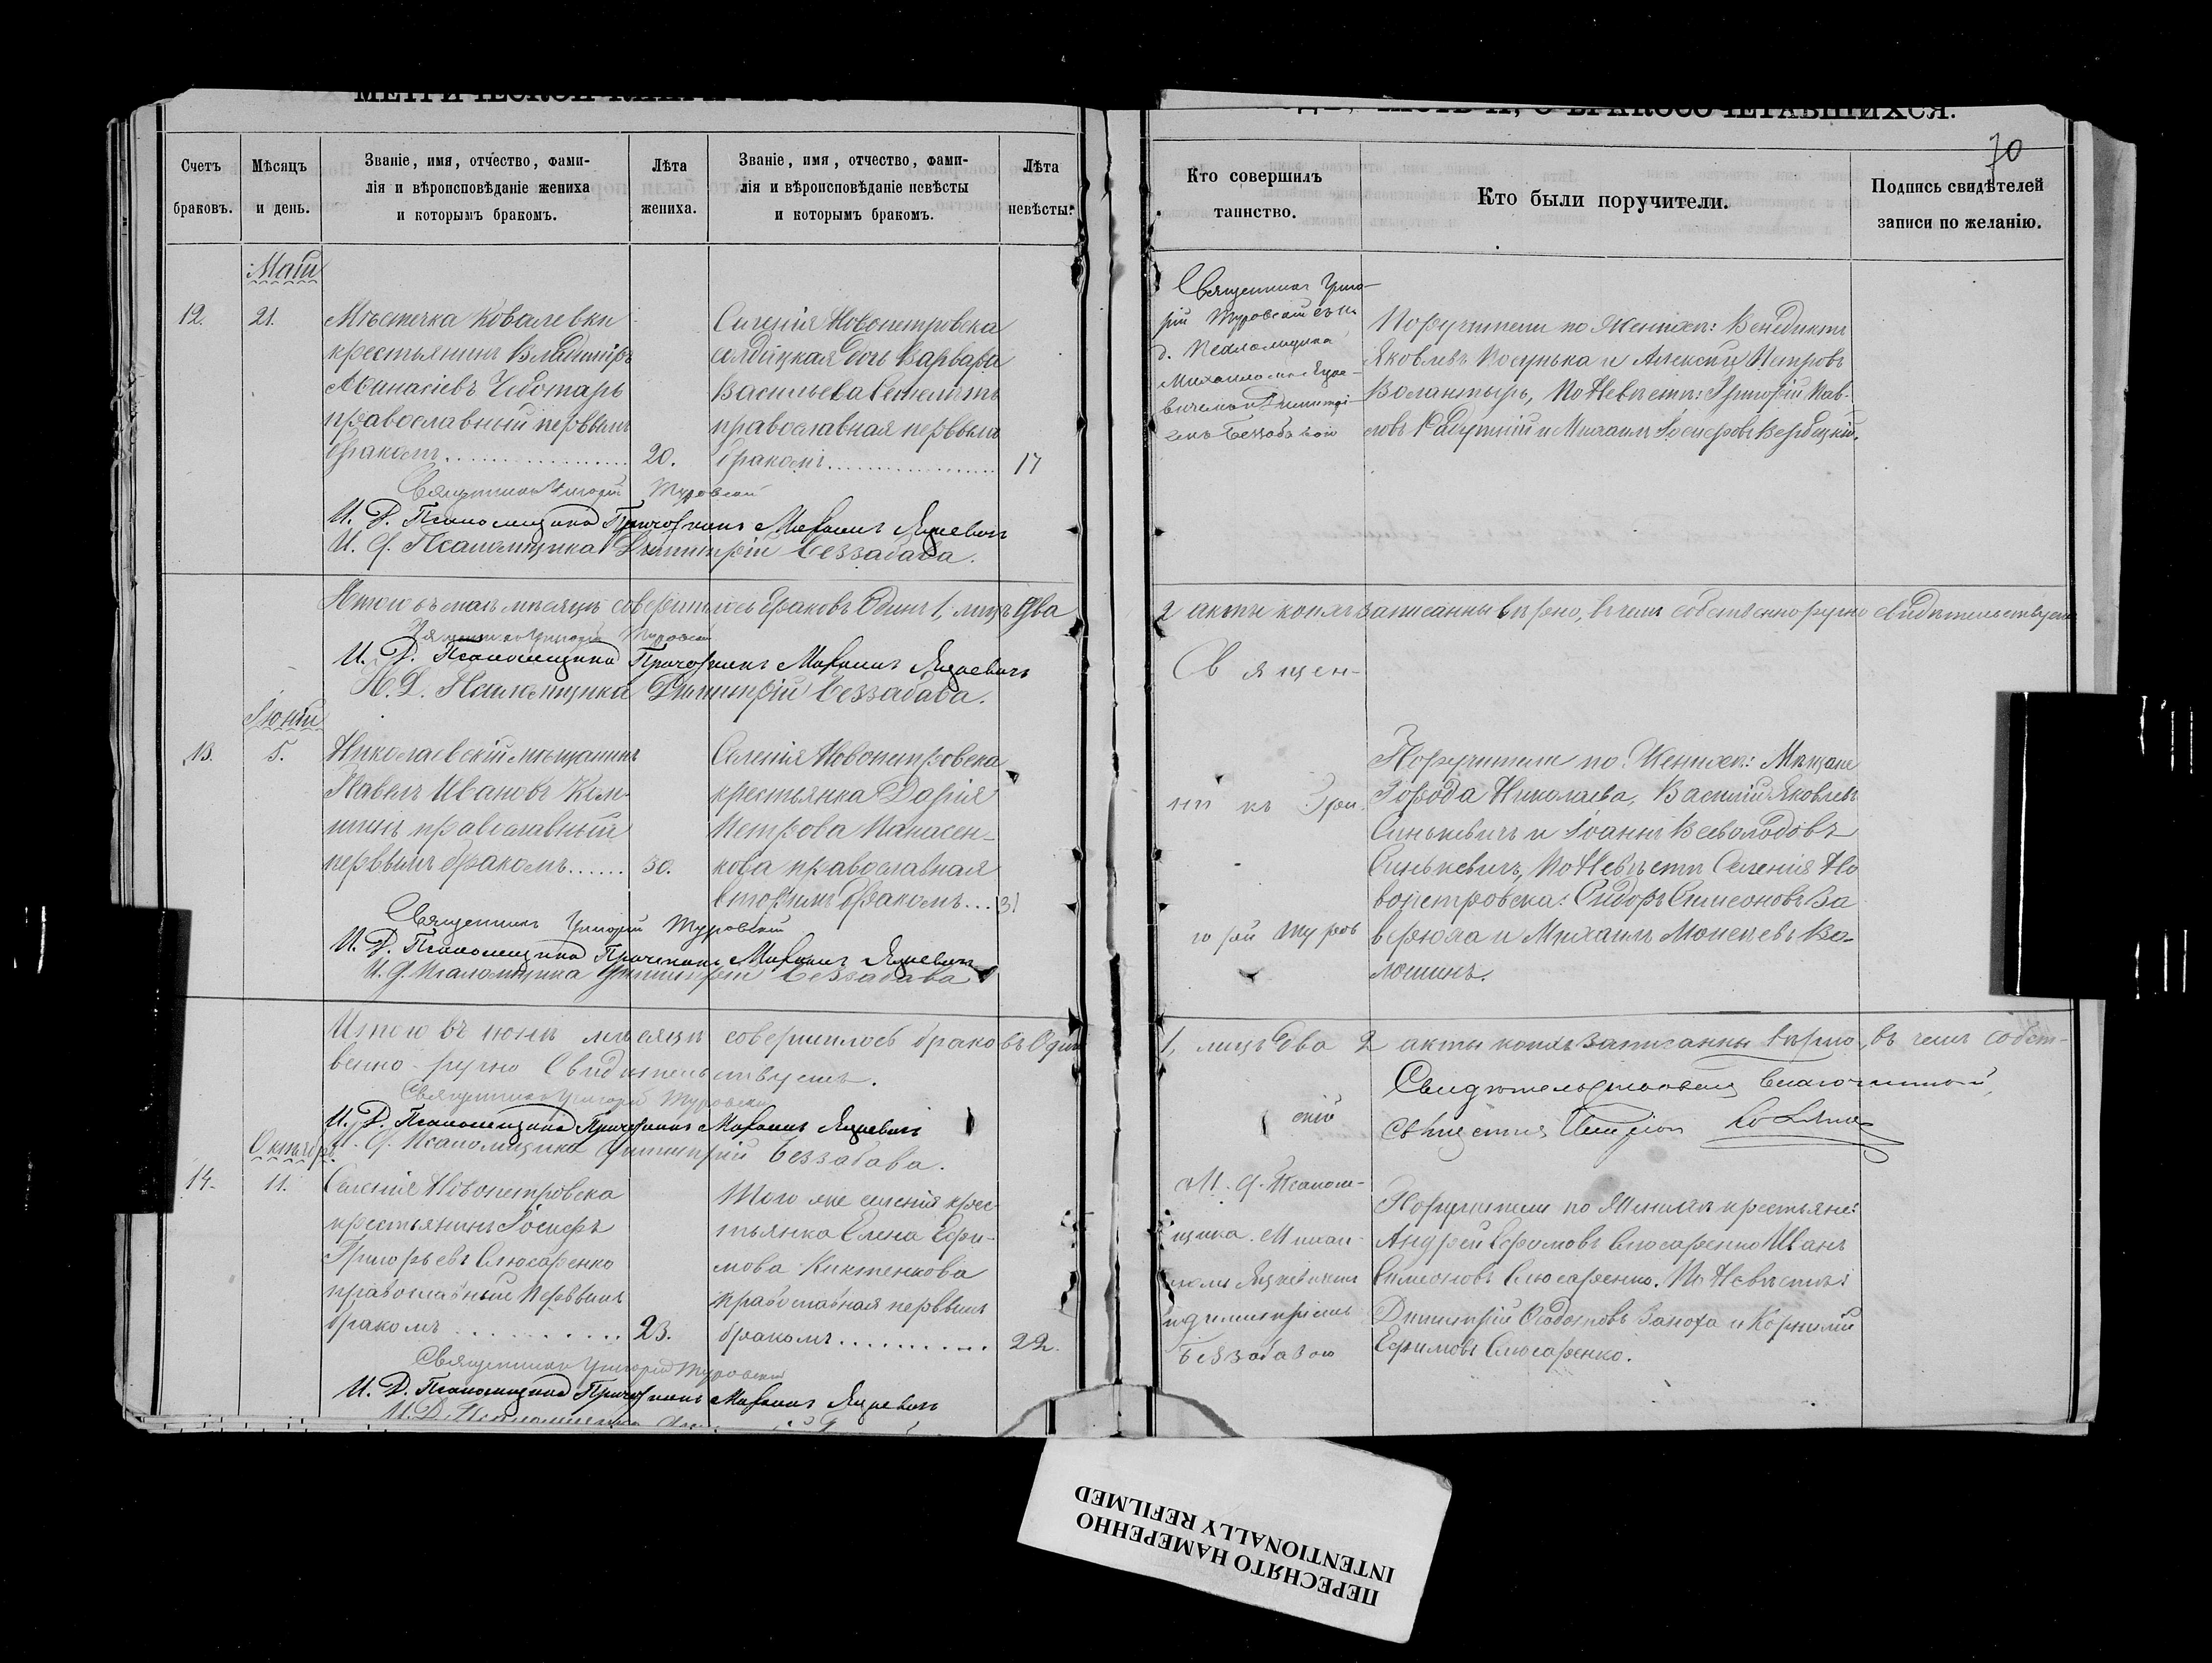 70
Счетъ браковъ.
Мѣсяцъ и день.
Званіе, имя, отчество, фами-
лія и вѣроисповѣданіе жениха
и которымъ бракомъ.
Лѣта жениха.
Званіе, имя, отчество, фами-
лія и вѣроисповѣданіе невѣсты
и которымъ бракомъ.
Лѣта невѣсты.
Кто совершилъ
таинство.
Кто были поручители.
Подпись свидѣтелей
записи по желанію.
Май
12.
21.
Мѣстечка Ковалевки
крестьянинъ Владиміръ
Аѳанасіевъ Чеботарь
православный первымъ
бракомъ
20.
Селенія Новопетровска
солдатская дочь Варвара
Васильева
православная первымъ
бракомъ
17
Священникъ Григо-
рій Туровскій съ и.
д. Псаломщика
Михаиломъ Яцке-
вичемъ и Димитрі-
емъ Беззабавою
Поручители по женихѣ: Венедиктъ
Яковлевъ и Алексѣй Петровъ
По Невѣстѣ: Григорій Пав-
ловъ и Михаилъ Вербицкій.
Священникъ Григорій Туровскій
И. Д. Псаломщика Причетникъ Михаилъ Яцкевичъ
И. д. Псаломщика Димитрій Беззабава.
Итого въ маѣ мѣсяцѣ совершилось браковъ Одинъ 1, лицъ Два
2 акты коихъ записанны вѣрно, въ чемъ собственноручно свидѣтельствуемъ
Священникъ Григорій Туровскій
И. Д. Псаломщика Причетникъ Михаилъ Яцкевичъ
И. Д. Псаломщика Димитрій Беззабава.
Іюнь
13.
5.
Николаевскій мѣщанинъ
Павелъ Ивановъ
православный
первымъ бракомъ
30.
Селенія Новопетровска
крестьянка Дарія
Петрова Панасен-
кова православная
вторымъ бракомъ
31
Священ-
никъ Гри-
горій Туров-
скій
Поручители по Женихѣ: Мѣщане
Города Николаева, Василій Яковлевъ
Синькевичъ и Іоаннъ Всеволодовъ
Синькевичъ, По Невѣстѣ Селенія Но
вопетровска: Сидоръ Симеоновъ Ва
врюха и Михаилъ Моисеевъ Во-
лошинъ.
Священникъ Григорій Туровскій
И. Д. Псаломщика Причетникъ Михаилъ Яцкевичъ
И. д. Псаломщика Димитрій Беззабава
Итого въ іюнѣ мѣсяцѣ совершилось браковъ Одинъ
1, лицъ два 2 акты коихъ записанны вѣрно, въ чемъ собст-
венно-ручно Свидѣтельствуемъ.
Священникъ Григорій Туровскій
И. Д. Псаломщика Причетникъ Михаилъ Яцкевичъ
И. д. Псаломщика Димитрій Беззабава.
Свидѣтельствовалъ Благочинный,
Октябрь
14.
11.
Селенія Новопетровска
крестьянинъ Іосифъ
Григорьевъ Слюсаренко
православный первымъ
бракомъ
23.
Того же селенія крес-
тьянка Елена Ефи-
мова Киктенкова
православная первымъ
бракомъ
22.
И. д. Псалом-
щика Михаи-
ломъ Яцкевичемъ
и Димитріемъ
Беззабавою
Поручители по Женихѣ крестьяне:
Андрей Ефимовъ Слюсаренко Иванъ
Симеоновъ Слюсаренко. По Невѣстѣ:
Димитрій и Корнилій
Ефимовъ Слюсаренко.
Священникъ Григорій Туровскій
И. Д. Псаломщика Причетникъ Михаилъ Яцкевичъ
И. Д. Псаломщика
ПЕРЕСНЯТО НАМЕРЕННО
INTENTIONALLY REFILMED